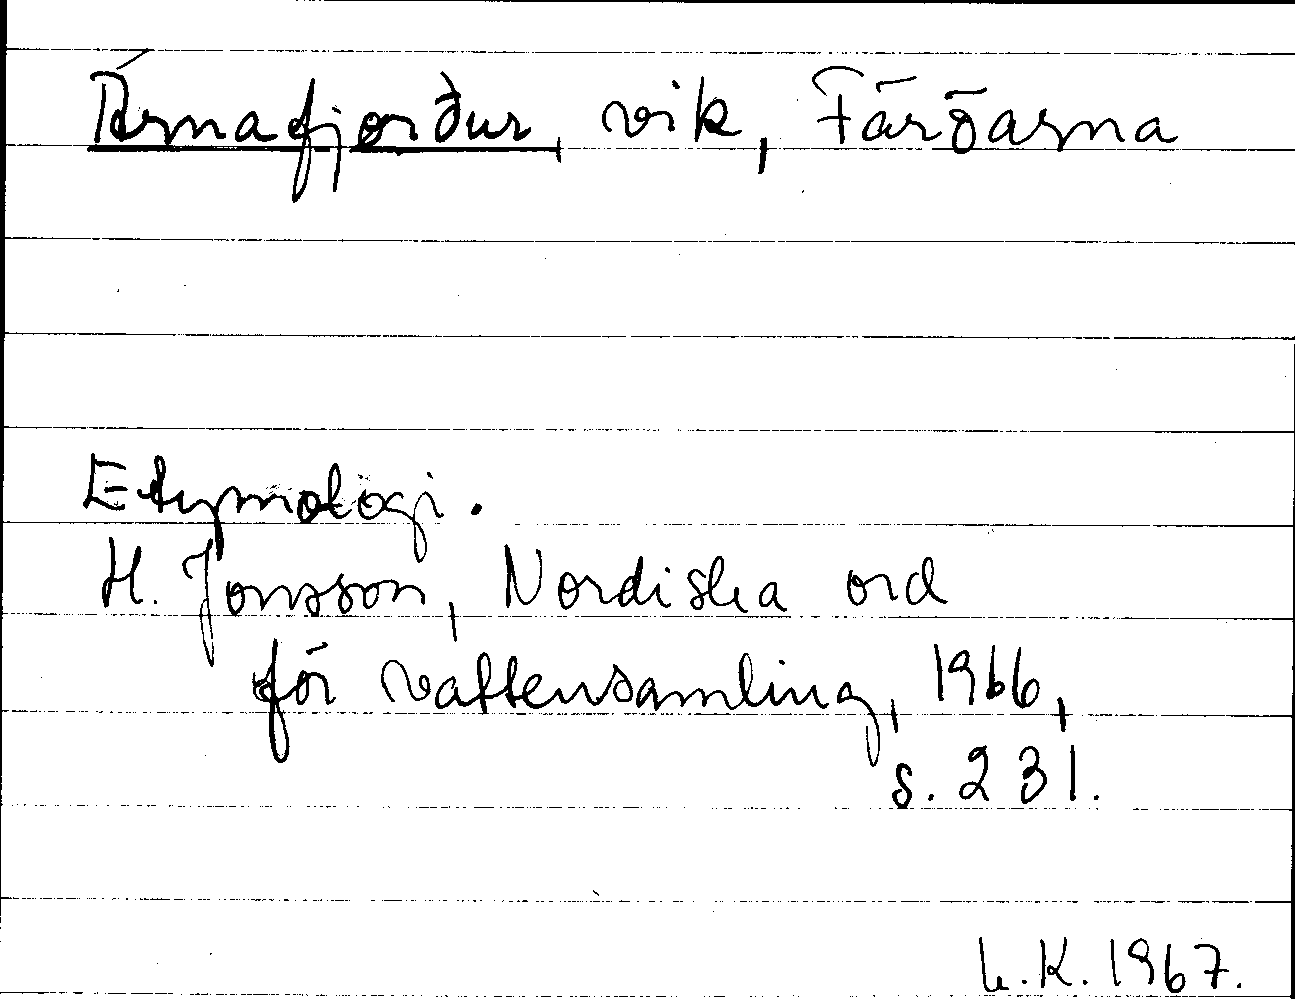 Árnafjørður, vik, Färöarna
Etymologi.
H. Jonsson, Nordiska ord
för vattensamling, 1966,
s. 231.
L.K. 1967.